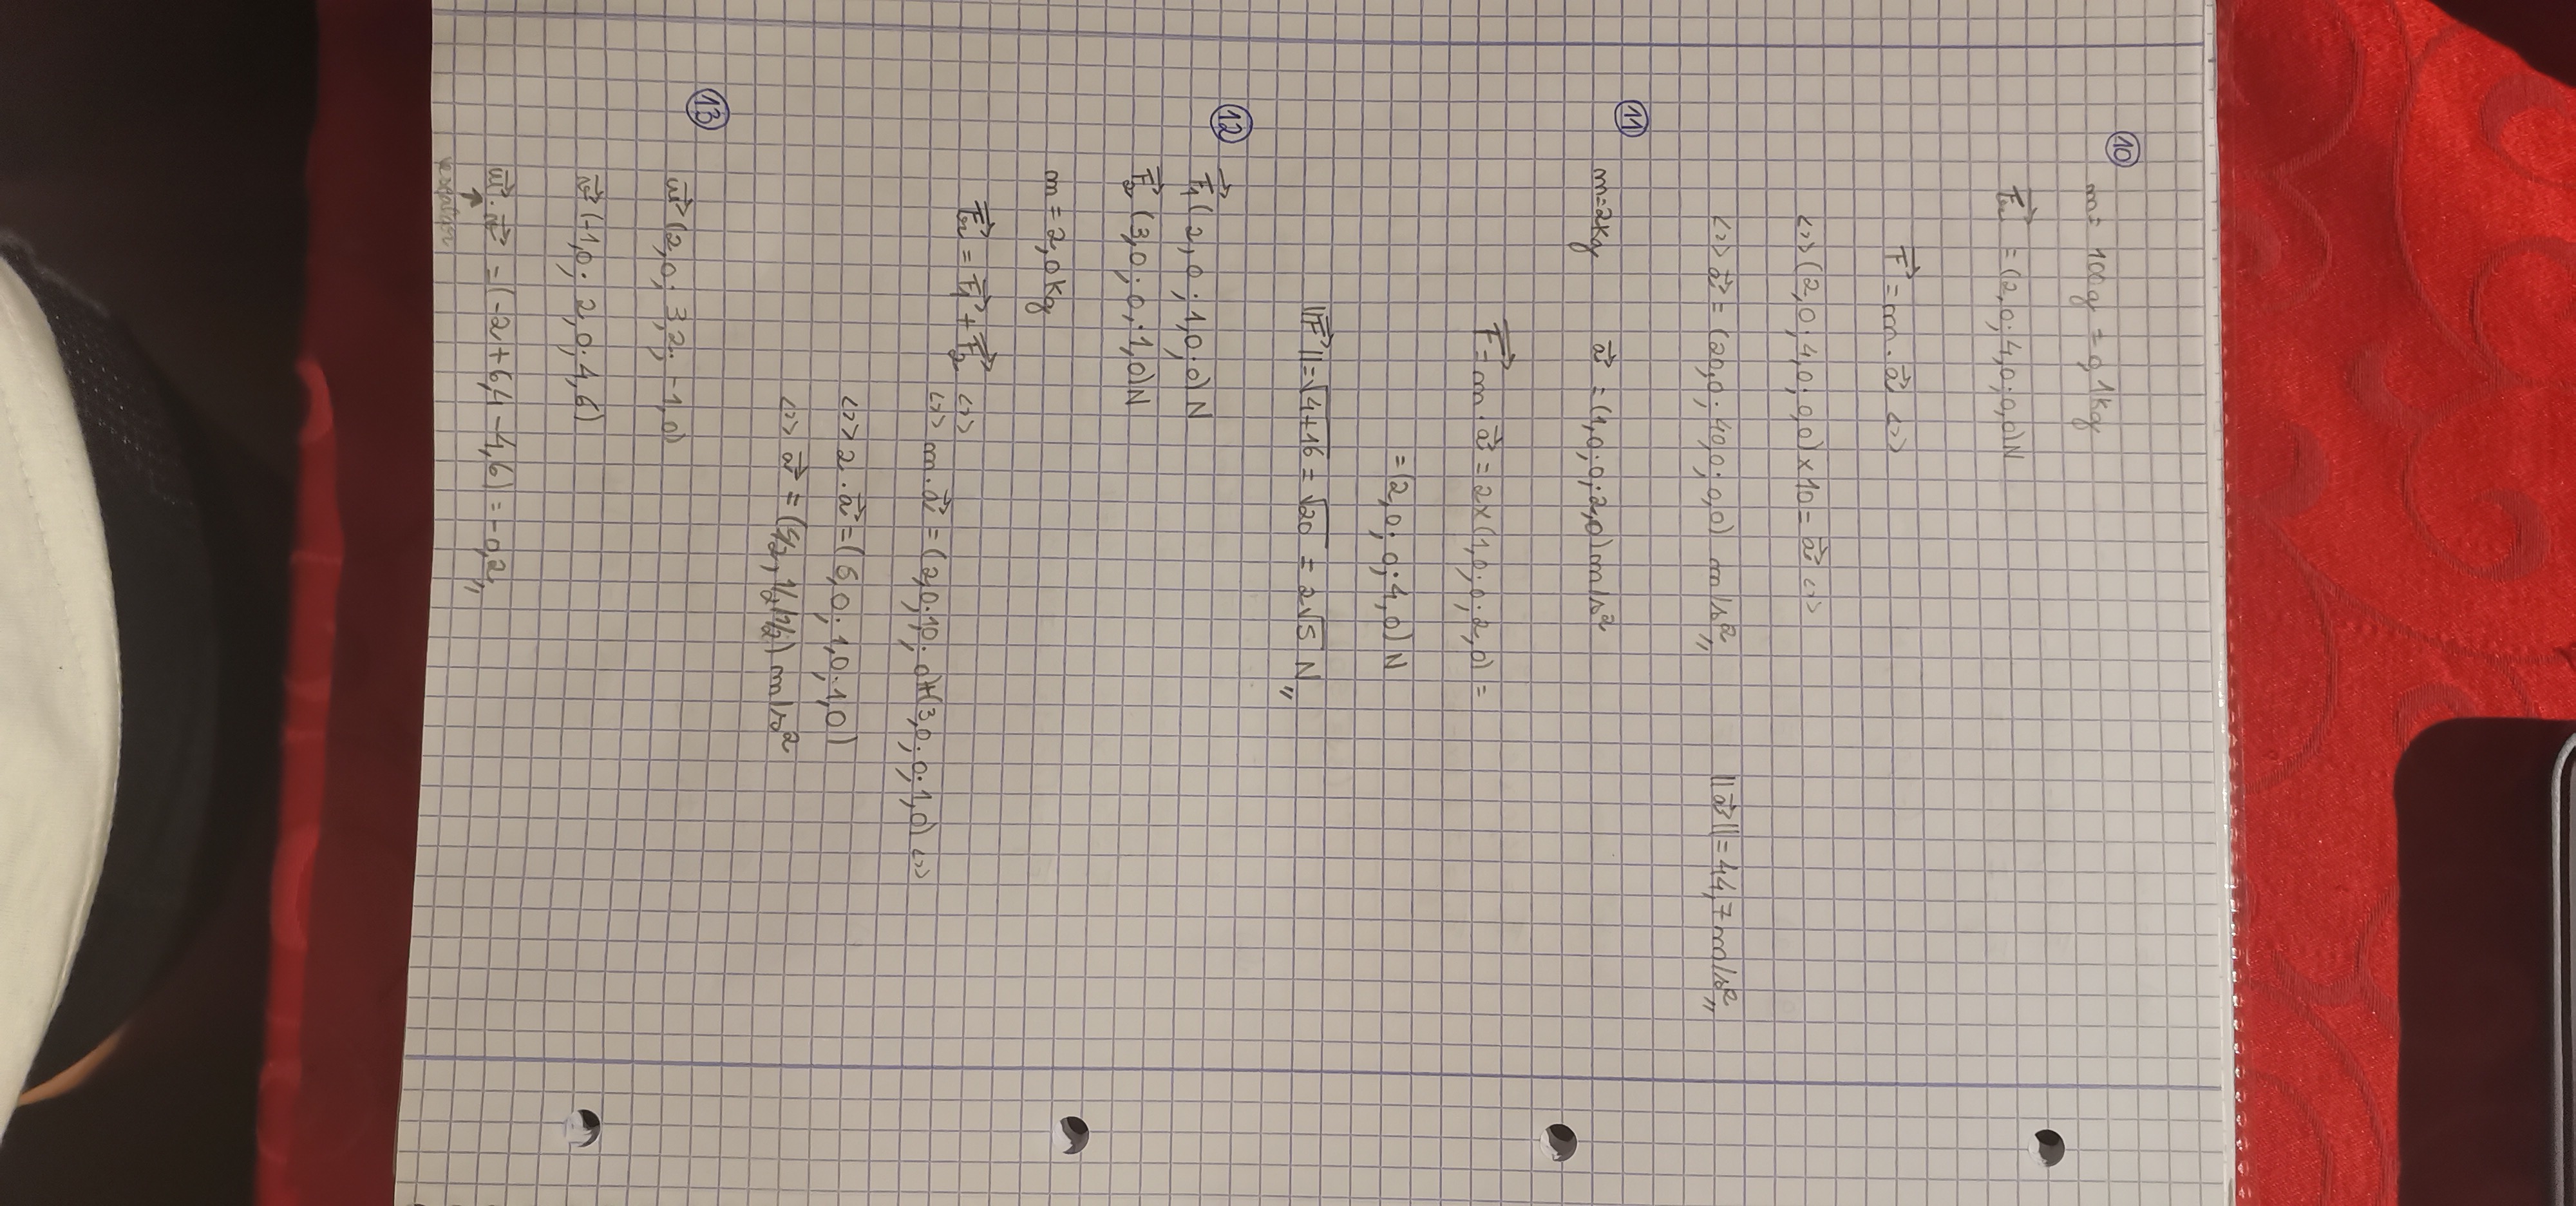 10
m = 100g = 0,1kg
F⃗m = (2,0; 4,0; 0,0)N
F⃗ = m · a⃗ <=>
<=> (2,0; 4,0; 0,0) × 10 = a⃗ <=>
<=> a⃗ = (20,0; 40,0; 0,0) m/s²,, ||a⃗|| = 44,7 m/s²,,
11
m = 2kg a⃗ = (1,0; 0; 2,0) m/s²
F⃗ = m · a⃗ = 2 × (1,0; 0; 2,0) =
= (2,0; 0; 4,0) N
||F⃗|| = √4+16 = √20 = 2√5 N,,
12
F⃗1 (2,0; 1,0; 0) N
F⃗2 (3,0; 0; 1,0) N
m = 2,0kg
F⃗m = F⃗1 + F⃗2 <=>
<=> m · a⃗ = (2,0; 1,0; 0) + (3,0; 0; 1,0) <=>
<=> 2 · a⃗ = (5,0; 1,0; 1,0)
<=> a⃗ = (5/2, 1/2, 1/2) m/s²
13
u⃗ (2,0; 3,2; -1,0)
v⃗ (-1,0; 2,0; 4,6)
u⃗ · v⃗ = (-2 + 6,4 - 4,6) = -0,2,,